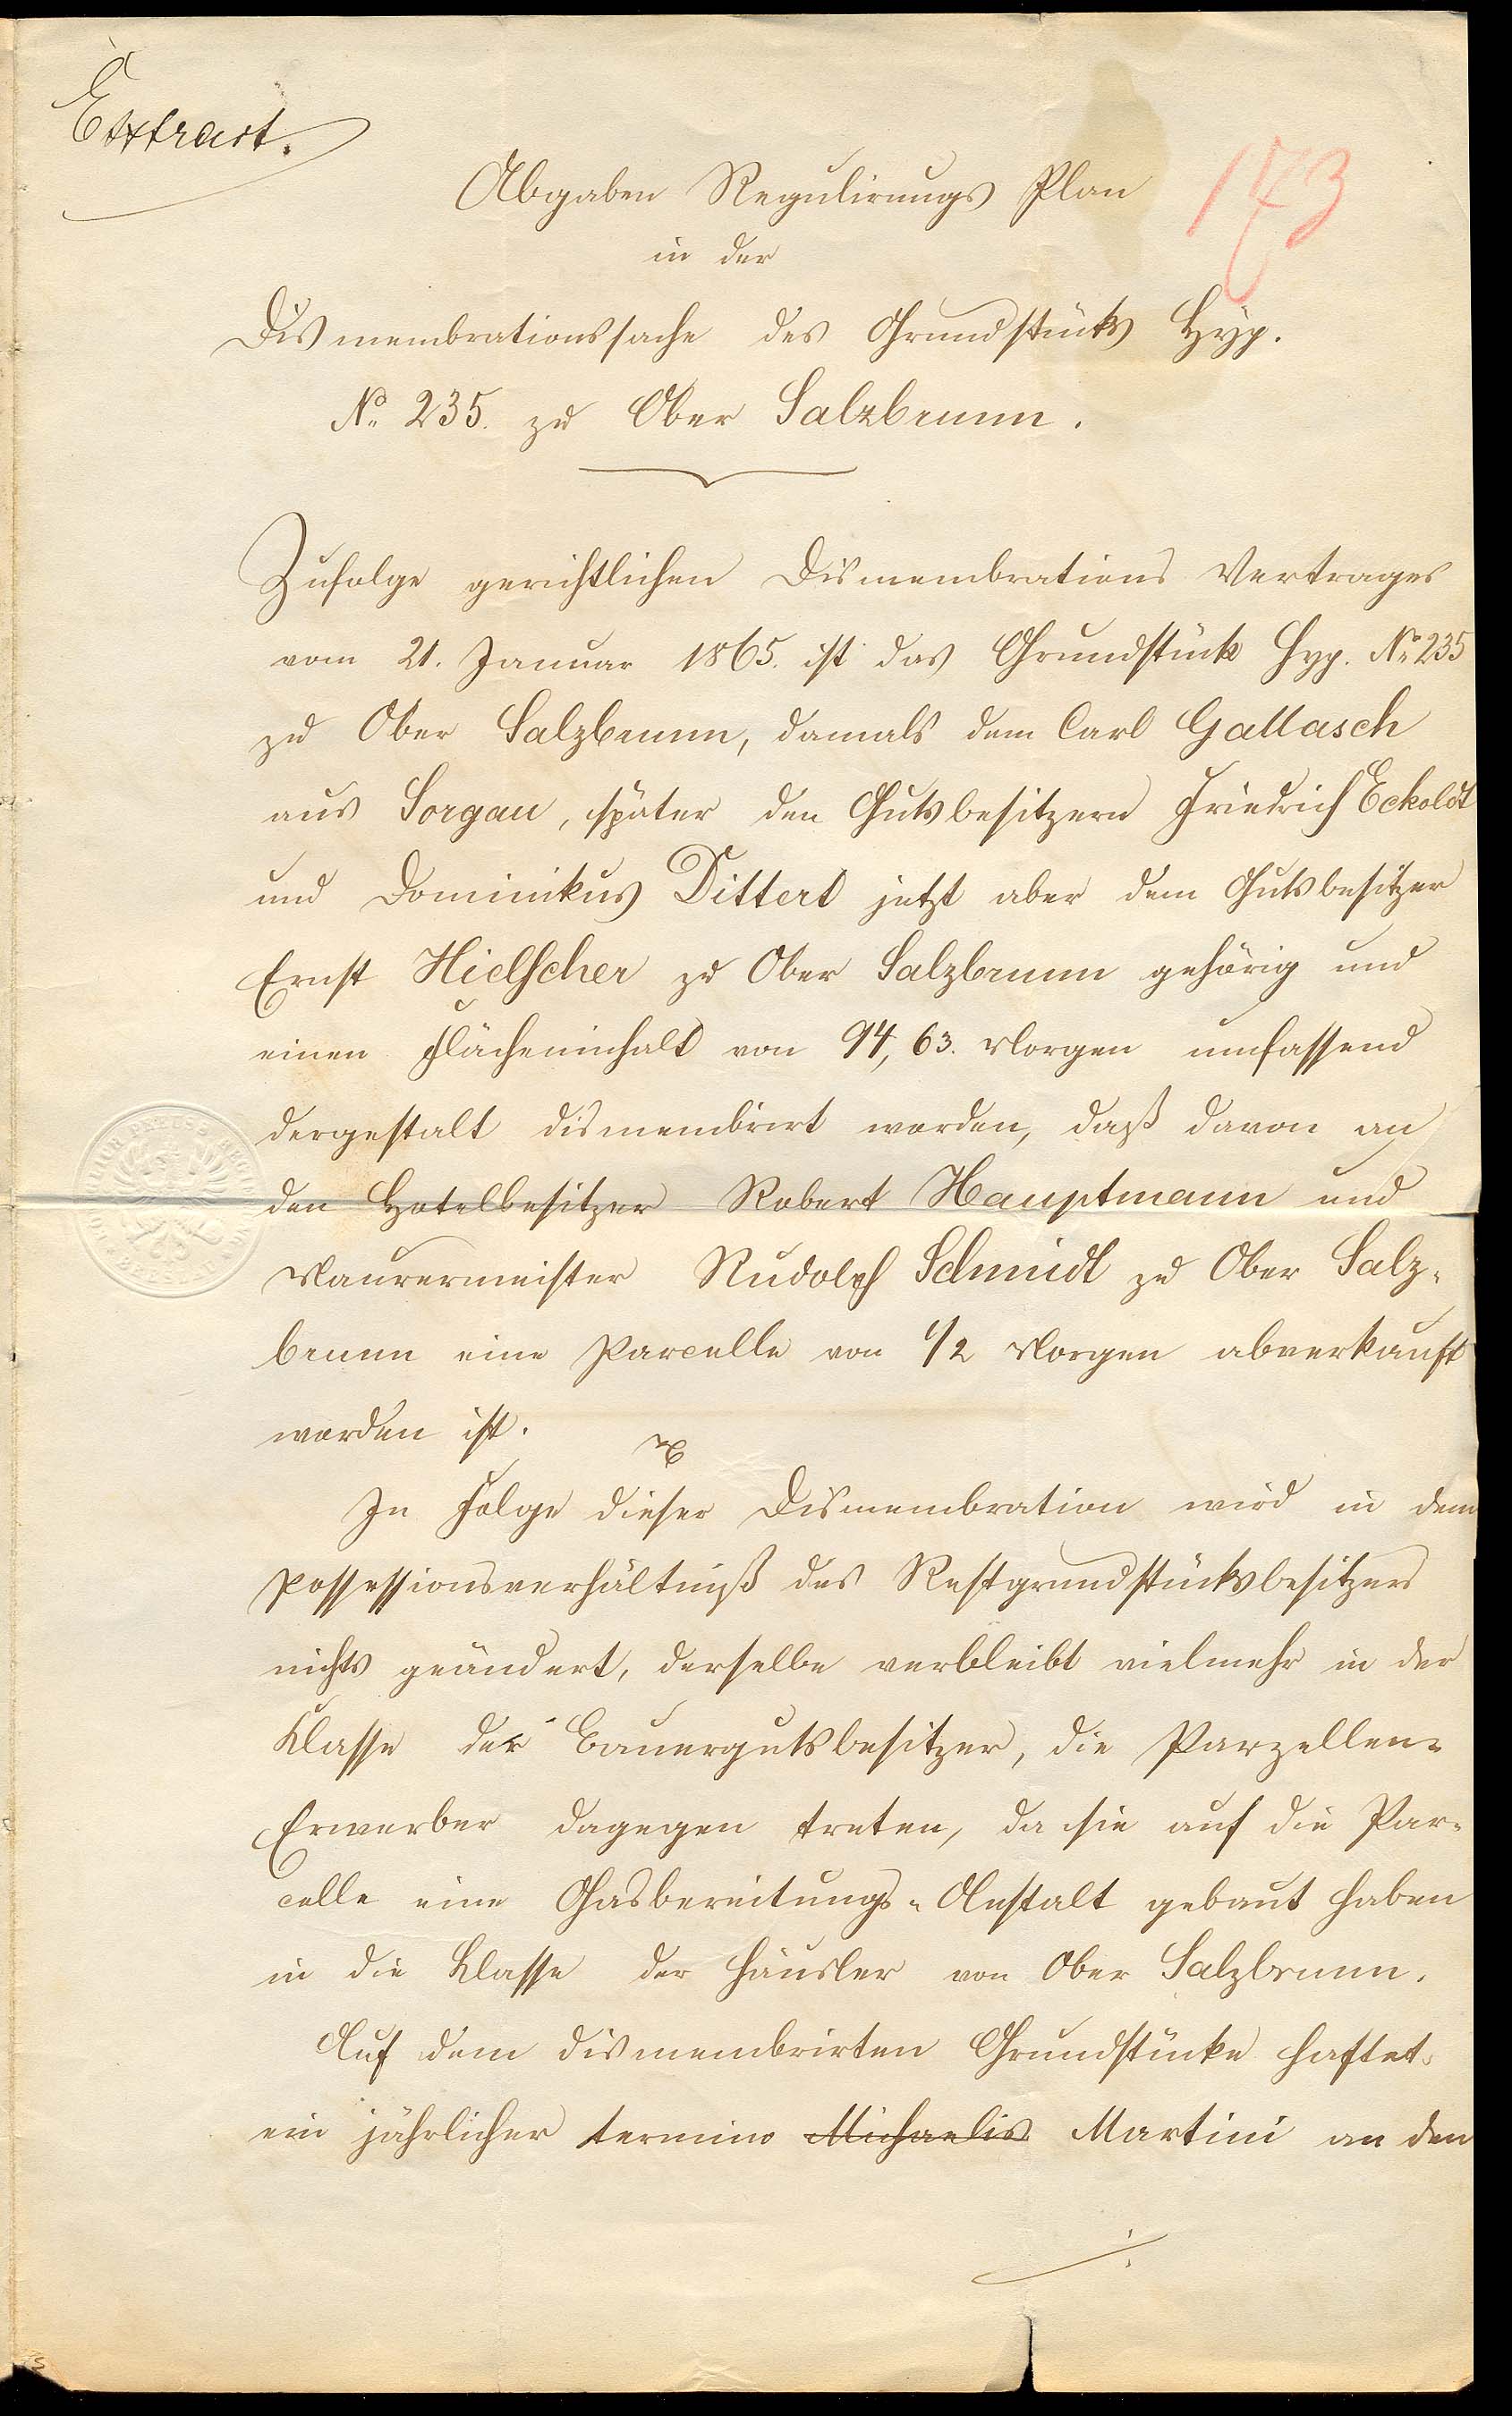 Extract.
173
Abgaben Regulirungs Plan
in der
Dismembrationssache des Grundstücks Hyp.
No. 235. zu Ober Salzbrunn.
Zufolge gerichtlichen Dismembrations Vertrages
vom 21. Januar 1865. ist das Grundstück Hyp. No. 235
zu Ober Salzbrunn, damals dem Carl Gallasch
aus Sorgau, später den Gutsbesitzern Friedrich Eckoldt
und Dominikus Dittert jetzt aber dem Gutsbesitzer
Ernst Hielscher zu Ober Salzbrunn gehörig und
einen Flächeninhalt von 94,63. Morgen umfassend
dergestalt dismembrirt worden, daß davon an
den Hotelbesitzer Robert Hauptmann und
Maurermeister Rudolph Schmidt zu Ober Salz-
brunn eine Parcelle von 1/2 Morgen abverkauft
worden ist.
In Folge dieser Dismembration wird in dem
Possessionsverhältniß des Restgrundstücksbesitzers
nichts geändert, derselbe verbleibt vielmehr in der
Klasse der Bauergutsbesitzer, die Parzellen-
Erwerber dagegen treten, da sie auf die Par-
celle eine Gasbereitungs-Anstalt gebaut haben
in die Klasse der Häusler von Ober Salzbrunn.
Auf dem dismembrirten Grundstücke haftet
ein jährlicher termino Michaelis Martini an den